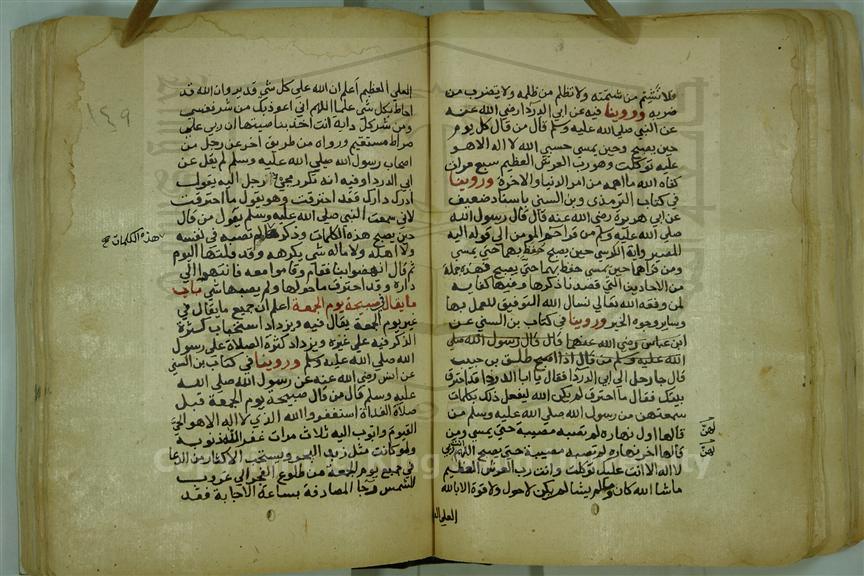 فلا تشتم من شتمته ولا تظلم من ظلمه ولا يضرب من
ضربه وروينا فيه عن ابي الدرداء رضي الله عنه
عن النبي صلى الله عليه وسلم قال من قال كل يوم
حين يصبح وحين يمسي حسبي الله لا اله الا هو
عليه توكلت وهو رب العرش العظيم سبع مرات
كفاه الله ما اهمه من امر الدنيا والاخرة وروينا
في كتاب الترمذي وبن السني باسناد ضعيف
عن ابي هريرة رضي الله عنه قال قال رسول الله
صلى الله عليه وسلم من قرا حم المومن الى قوله اليه
المصير واية الكرسي حين يصبح حفظ بها حتي يمسي
ومن قراهما حين يمسي حفظ بهما حتي يصبح فهذه جملة
من الاحاديث التي قصدنا ذكرها وفيها كفاية
لمن وفقه الله تعالى نسال الله التوفيق للعمل بها
وساير وجوه الخير وروينا في كتاب بن السني عن
ابن عباس رضي الله عنهما قال قال رسول الله صلى
الله عليه وسلم من قال اذا اصبح طلق بن حبيب
قال جا رجل الى ابي الدرداء فقال يا ابا الدرداء قد احترق
بيتك فقال ما احترق لم يكن الله ليفعل ذلك بكلمات
سمعتهن من رسول الله صلى الله عليه وسلم من
قالها اول نهاره لم تصبه مصيبة حتي يمسي ومن
قالها اخر نهاره لم تصبه مصيبة حتي يصبح اللهم انت ربي
لا اله الا انت عليك توكلت وانت رب العرش العظيم
ما شا الله كان وما لم يشا لم يكن لا حول ولا قوة الا بالله
العلي
العلي العظيم اعلم ان الله على كل شي قدير وان الله قد
احاط بكل شي علما اللهم اني اعوذ بك من شر نفسي
ومن شر كل دابة انت اخذ بناصيتها ان ربي على
صراط مستقيم ورواه من طريق اخر عن رجل من
اصحاب رسول الله صلى الله عليه وسلم لم يقل عن
ابي الدرداء وفيه انه تكرر مجي رجل اليه يقول
ادرك دارك فقد احترقت وهو يقول ما احترقت
لاني سمعت النبي صلى الله عليه وسلم يقول من قال
حين يصبح هذه الكلمات وذكر لم تصبه في نفسه
هذه الكلمات صح
ولا اهله ولا ماله شي يكرهه وقد قلتها اليوم
ثم قال انهضوا بنا فقام وقاموا معه فانتهوا الى
داره وقد احترق ما حولها ولم يصبها شي باب
ما يقال في صبيحة يوم الجمعة اعلم ان جميع ما يقال في
غير يوم الجمعة يقال فيه ويزداد استحباب كثرة
الذكر فيه على غيره ويزداد كثرة الصلاة على رسول
الله صلى الله عليه وسلم وروينا في كتاب بن السني
عن انس رضي الله عنه عن رسول الله صلى الله
عليه وسلم قال من قال صبيحة يوم الجمعة قبل
صلاة الغداة استغفر والله الذي لا اله الا هو الحي
القيوم واتوب اليه ثلاث مرات غفر الله ذنوبه
ولو كانت مثل زبد البحر ويستحب الاكثار من الدعا
في جميع يوم الجمعة من طلوع الفجر الى غروب
الشمس رجا المصادفة بساعة الاجابة فقد
١٤٩